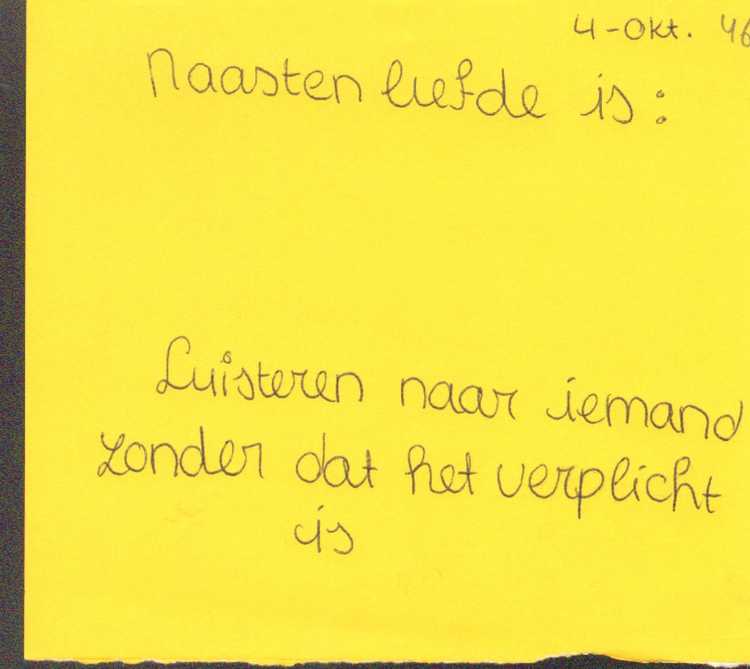 4-Okt. 46
Naasten liefde is:
Luisteren naar iemand
zonder dat het verplicht
is